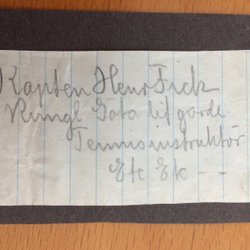 Kapten Henr Frck
Kungl Göta lif garde
Tennisinstruktör
Etc Etc - -